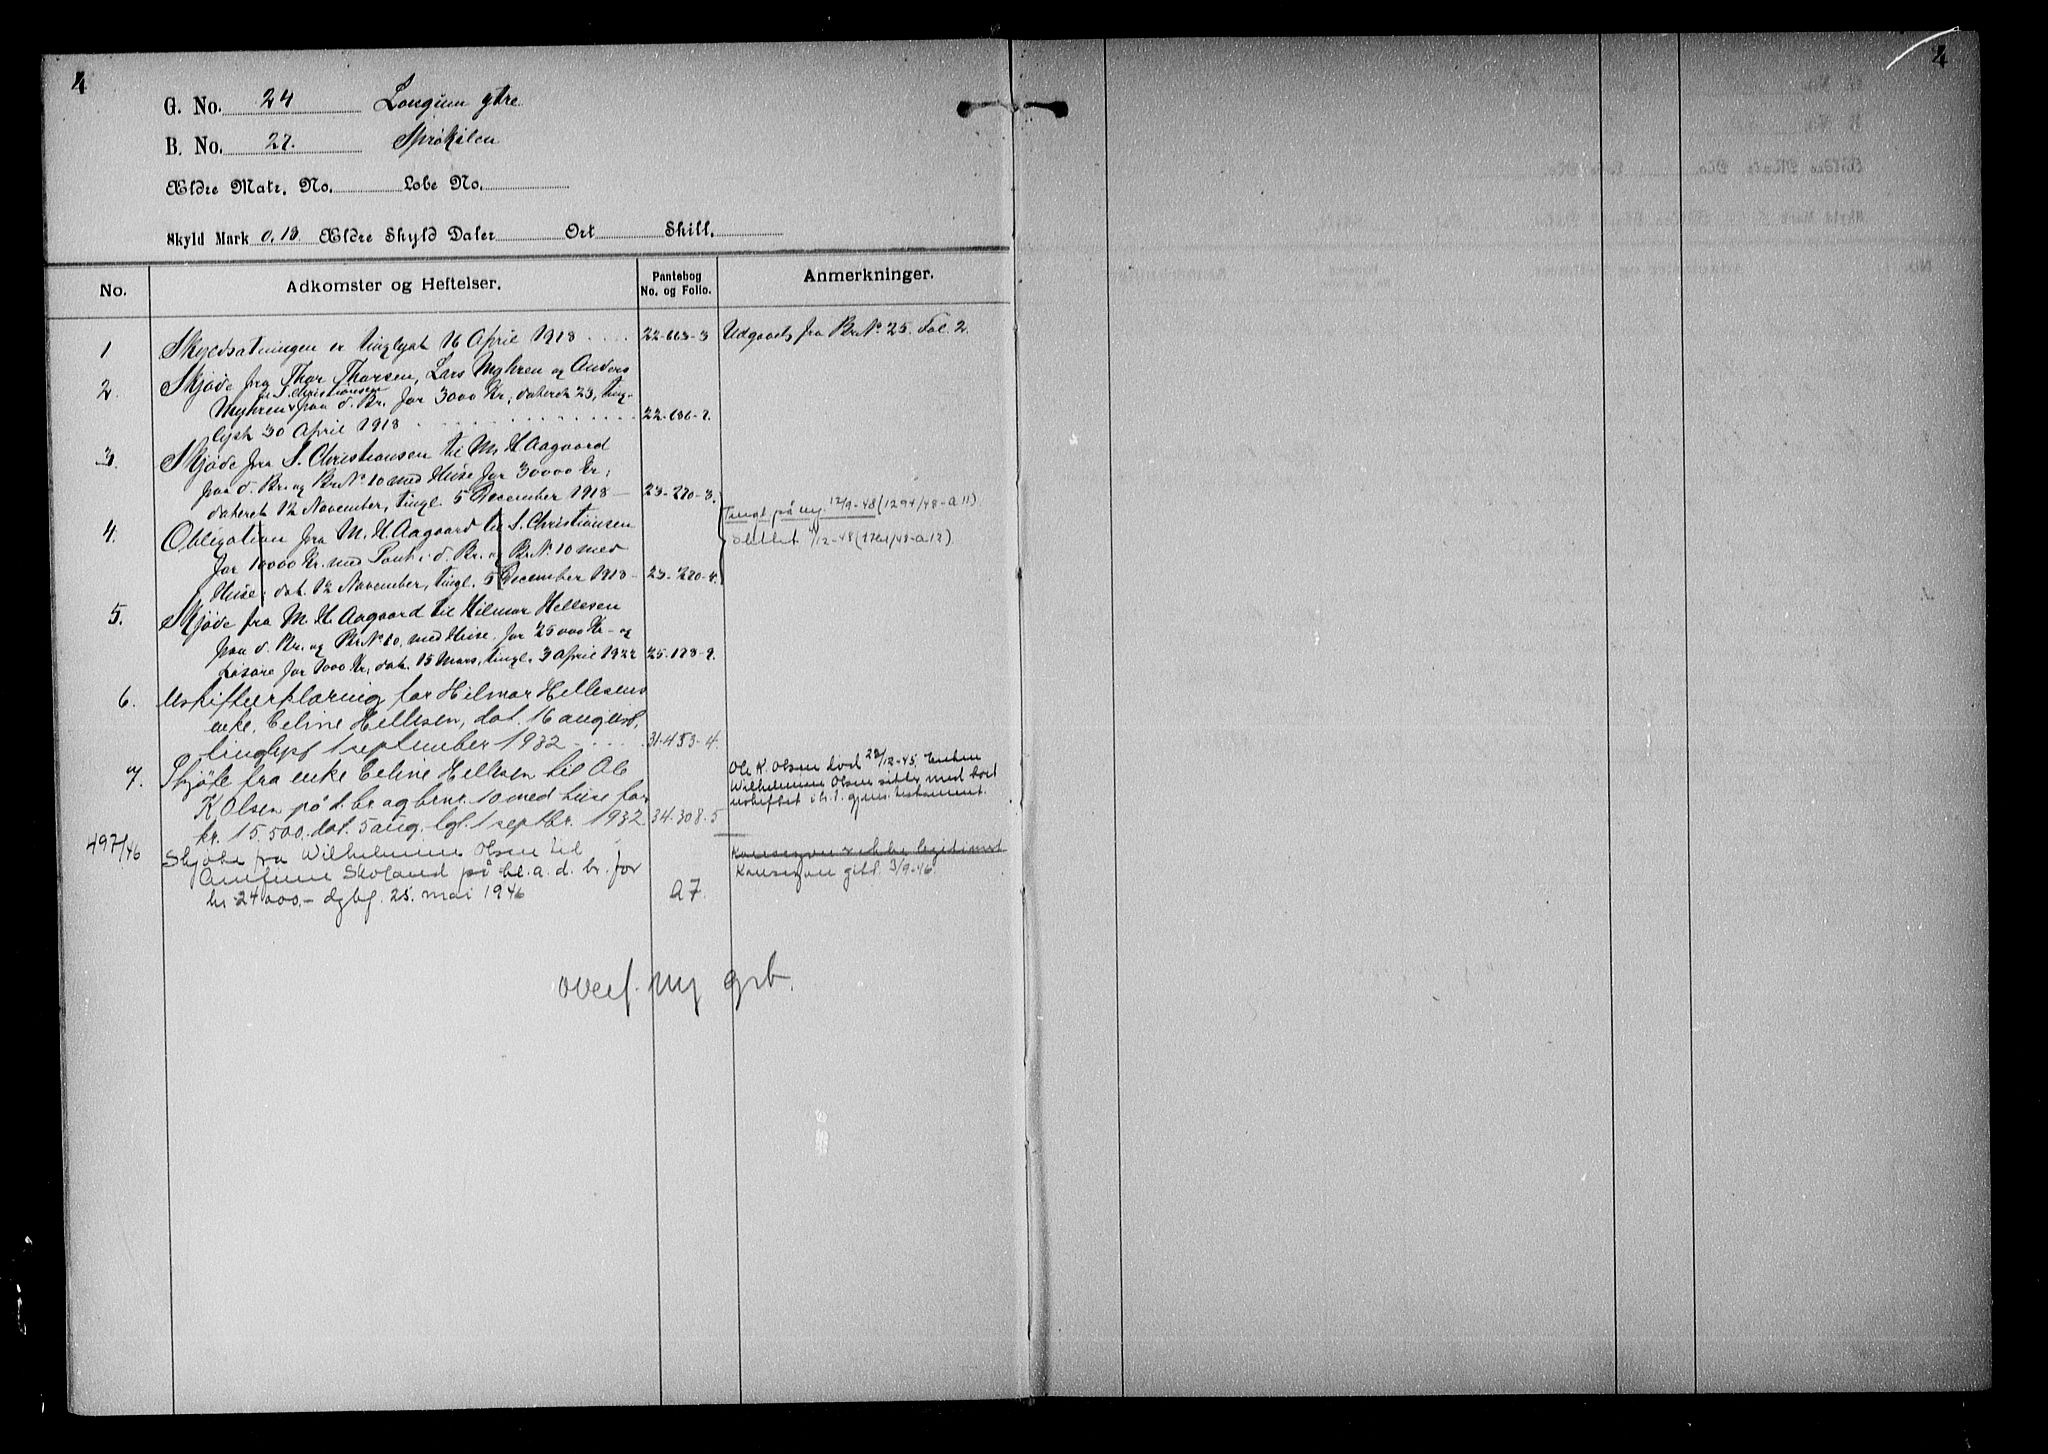 4
G. No. 24 Longum ytre
B. No. 27. Sprøkilen
Ældre Matr. No. Løbe No.
Skyld Mark 0.18 Ældre Skyld Daler Ort Skill.
No. Adkomster og Heftelser. Pantebog No. og Folio. Anmerkninger.
1 Skyldsætningen er tinglyst 16 April 1918 22-663-3 Udgaaet fra Br.N° 25. Fol. 2.
2. Skjøde fra Thor Thorsen, Lars Myhren og Anders
Myhren til S. Christiansen paa d. Br. for 3000 Kr.; dateret 23, ting-
lyst 30 April 1918 22-686-7.
3. Skjøde fra S. Christiansen til M. H. Aagaard
paa d. Br. og Br.N° 10 med Huse for 30000 Kr;
dateret 12 November, tingl. 5 December 1918 23-270-3.
4. Obligation fra M. H. Aagaard til S. Christiansen
for 10000 Kr. med Pant i d. Br. og Br.N° 10 med
Huse; dat. 12 November, tingl. 5 December 1918 23-270-4.
Tingl på ny 12/9-48 (1294/48-a11)
Slettet /12-48
5. Skjøde fra M. H. Aagaard til Hilmar Hellesen
paa d. Br. og Br.N° 10. med Huse. for 25000 Kr- og
Løsøre for 1000 Kr, dat. 15 Mars, tingl. 3 April 1922 25-178-9.
6. Uskifteerklæring for Hilmar Hellesens
enke, Celine Hellesen, dat. 16 august,
tinglyst 1 september 1932 31-453-4.
7. Skjøte fra enke Celine Hellesen til Ole
K Olsen på d. br og brnr. 10 med huse for
kr. 15.500. dat. 5 aug. tgl. 1 septbr. 1932 34-308-5
Ole K. Olsen død 28/12-45. Enken
Wilhelmine Olsen sitter med boet
uskiftet i h. t. gjens. testament.
497/46 Skjøte fra Wilhelmine Olsen til
Skoland på bl. a. d. br. for
kr 24 000.- dgbf. 25. mai 1946 a7.
Konsesjon ikke legitimert
Konsesjon gitt. 3/9-46
overf. ny grb.
4